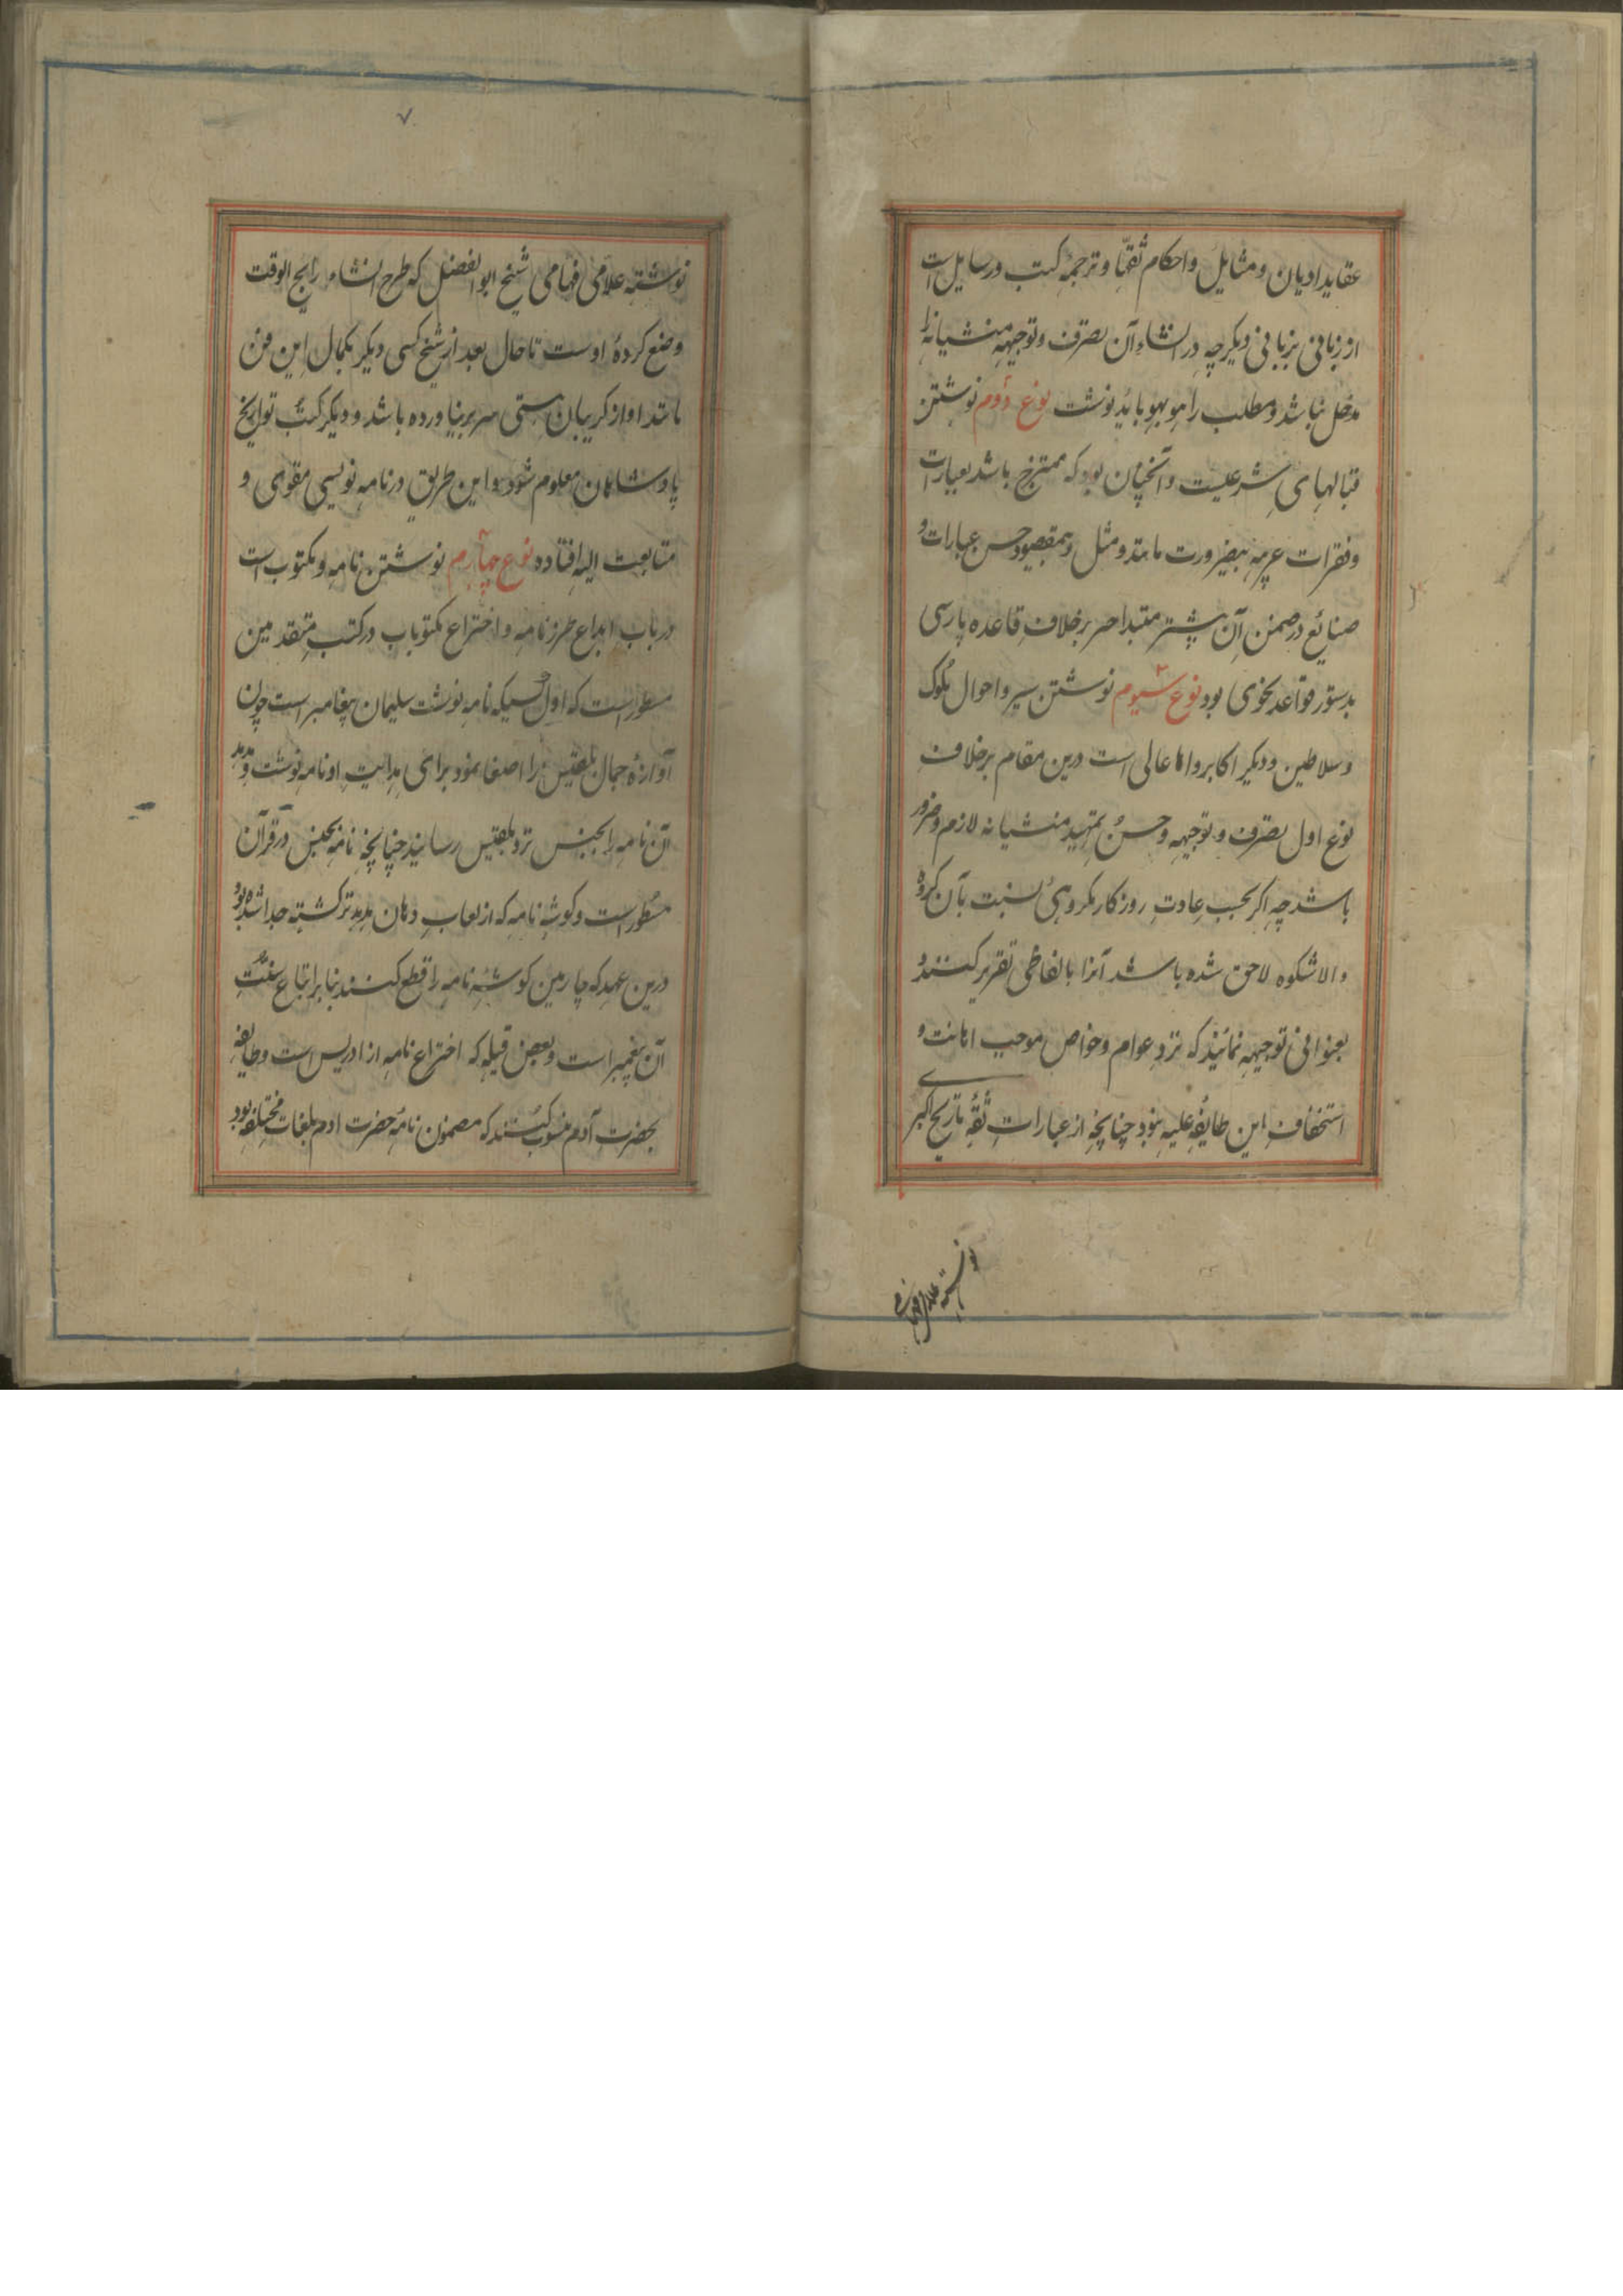 عقاید ادیان و مثایل و احکام ثقها و ترجمه کتب و رسایل است
از زبانی بزبانی دیگر چه در انشاء آن تصرف و توجیهه منشیانه را
مدخل نباشد و مطلب را هو بهو باید نوشت نوع دوم نوشتن
قبالهای شرعیست و آنچنان بود که ممتزج باشد بعبارات
و فقرات عربیه بضرورت مانند و مثل و بمقصود حسن عبارات و
صنایع در ضمن آن پیشتر مبتدا خبر برخلاف قاعده پارسی
بدستور قواعد نحوی بود نوع سیوم نوشتن سیر و احوال ملوک
و سلاطین و دیگر اکابر و اهالی است درین مقام برخلاف
نوع اول تصرف و توجیهه و حسن تمهید منشیانه لازم و ضرور
باشد چه اگر بحسب عادت روزگار مکروهی نسبت بآن گروه
والا شکوه لاحق شده باشد آنرا بالفاظی تقریر کنند و
بعنوانی توجیهه نمائیند که نزد عوام و خواص موجب اهانت و
استخفاف این طایفه علیه نبود چنانچه از عبارات ثقه تاریخ اکبری
نوشته علامی فهامی
۷
نوشته علامی فهامی شیخ ابوالفضل که طرح انشاء رایج الوقت
وضع کرده اوست تا حال بعد از شیخ کسی دیگر بکمال این فن
باشد او از گریبان هستی سر برنیاورده باشد و دیگر کتب تواریخ
پادشاهان معلوم شود و این طریق در نامه نویسی مقوی و
متابعت الیه افتاده نوع چهارم نوشتن نامه و مکتوب است
در باب ابداع طرز نامه و اختراع مکتوبات در کتب متقدمین
مسطور است که اول کسیکه نامه نوشت سلیمان پیغامبر است چون
آوازهٔ جمال بلقیس را اصغا نمود برای هدایت او نامه نوشت و هدهد
آن نامه را بجنس نزد بلقیس رسانید چنانچه نامه بجنس در قرآن
مسطور است و گوشه نامه که از لعاب دهان هدهد تر گشته جدا شده بود
درین عهد که چارمین گوشه نامه را قطع کنند بنابر اتباع سنت
آن پیغمبر است و بعضی قبله که اختراع نامه از ادریس است و طایفه
بحضرت آدم منسوب کنند که مضمون نامه حضرت ادم بلغات مختلفه بود